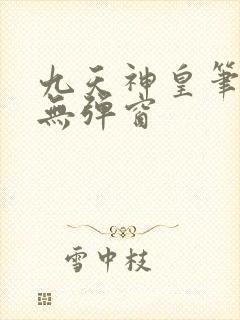 九天神皇筆
無彈窗
雪中枝